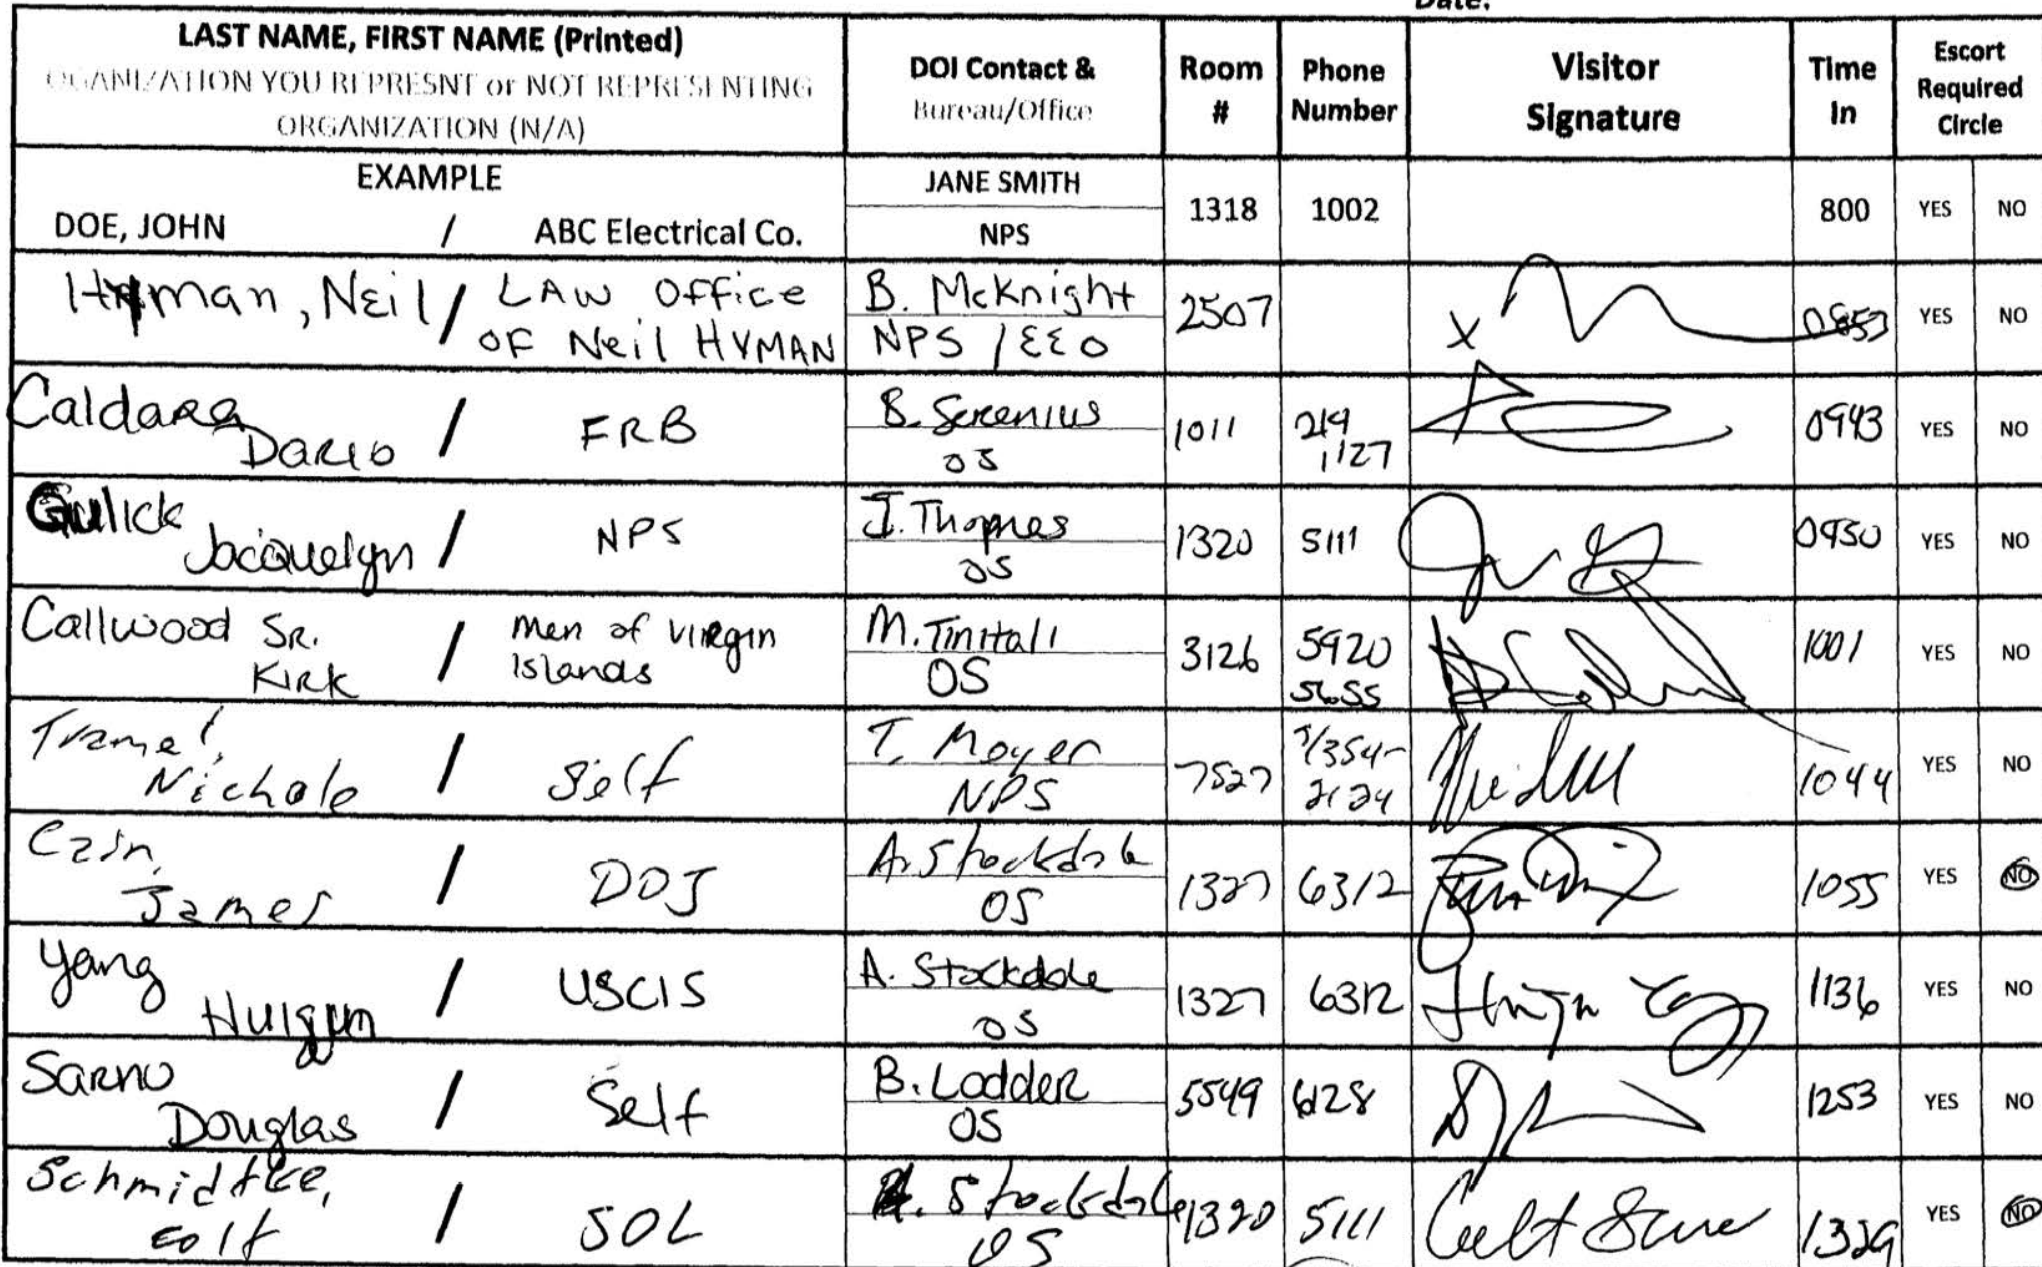 Date:
LAST NAME, FIRST NAME (Printed)
OGANIZATION YOU REPRESNT or NOT REPRESENTING
ORGANIZATION (N/A)
DOI Contact &
Bureau/Office
Room
#
Phone
Number
Visitor
Signature
Time
In
Escort
Required
Circle
EXAMPLE
DOE, JOHN / ABC Electrical Co.
JANE SMITH
NPS
1318
1002
800
YES
NO
Hyman, Neil / LAW Office
OF Neil HYMAN
B. McKnight
NPS / EEO
2507
X
0853
YES
NO
Caldara
Dario / FRB
B. Serenius
OS
1011
219
1127
0943
YES
NO
Gulick
Jacquelyn / NPS
J. Thomas
OS
1320
5111
0950
YES
NO
Callwood SR.
KIRK / Men of Virgin
Islands
M. Tinitali
OS
3126
5920
5655
1001
YES
NO
Tramel,
Nichole / Self
T. Moyer
NPS
7527
/354-
2124
1044
YES
NO
Czin,
James / DOJ
A. Stockdale
OS
1327
6312
1055
YES
NO
Yang
/ USCIS
A. Stockdale
OS
1327
6312
1136
YES
NO
SARNO
Douglas / Self
B. Lodder
OS
5549
6128
1253
YES
NO
Schmidtke,
Colt / SOL
A. Stockdale
OS
1320
5111
1329
YES
NO